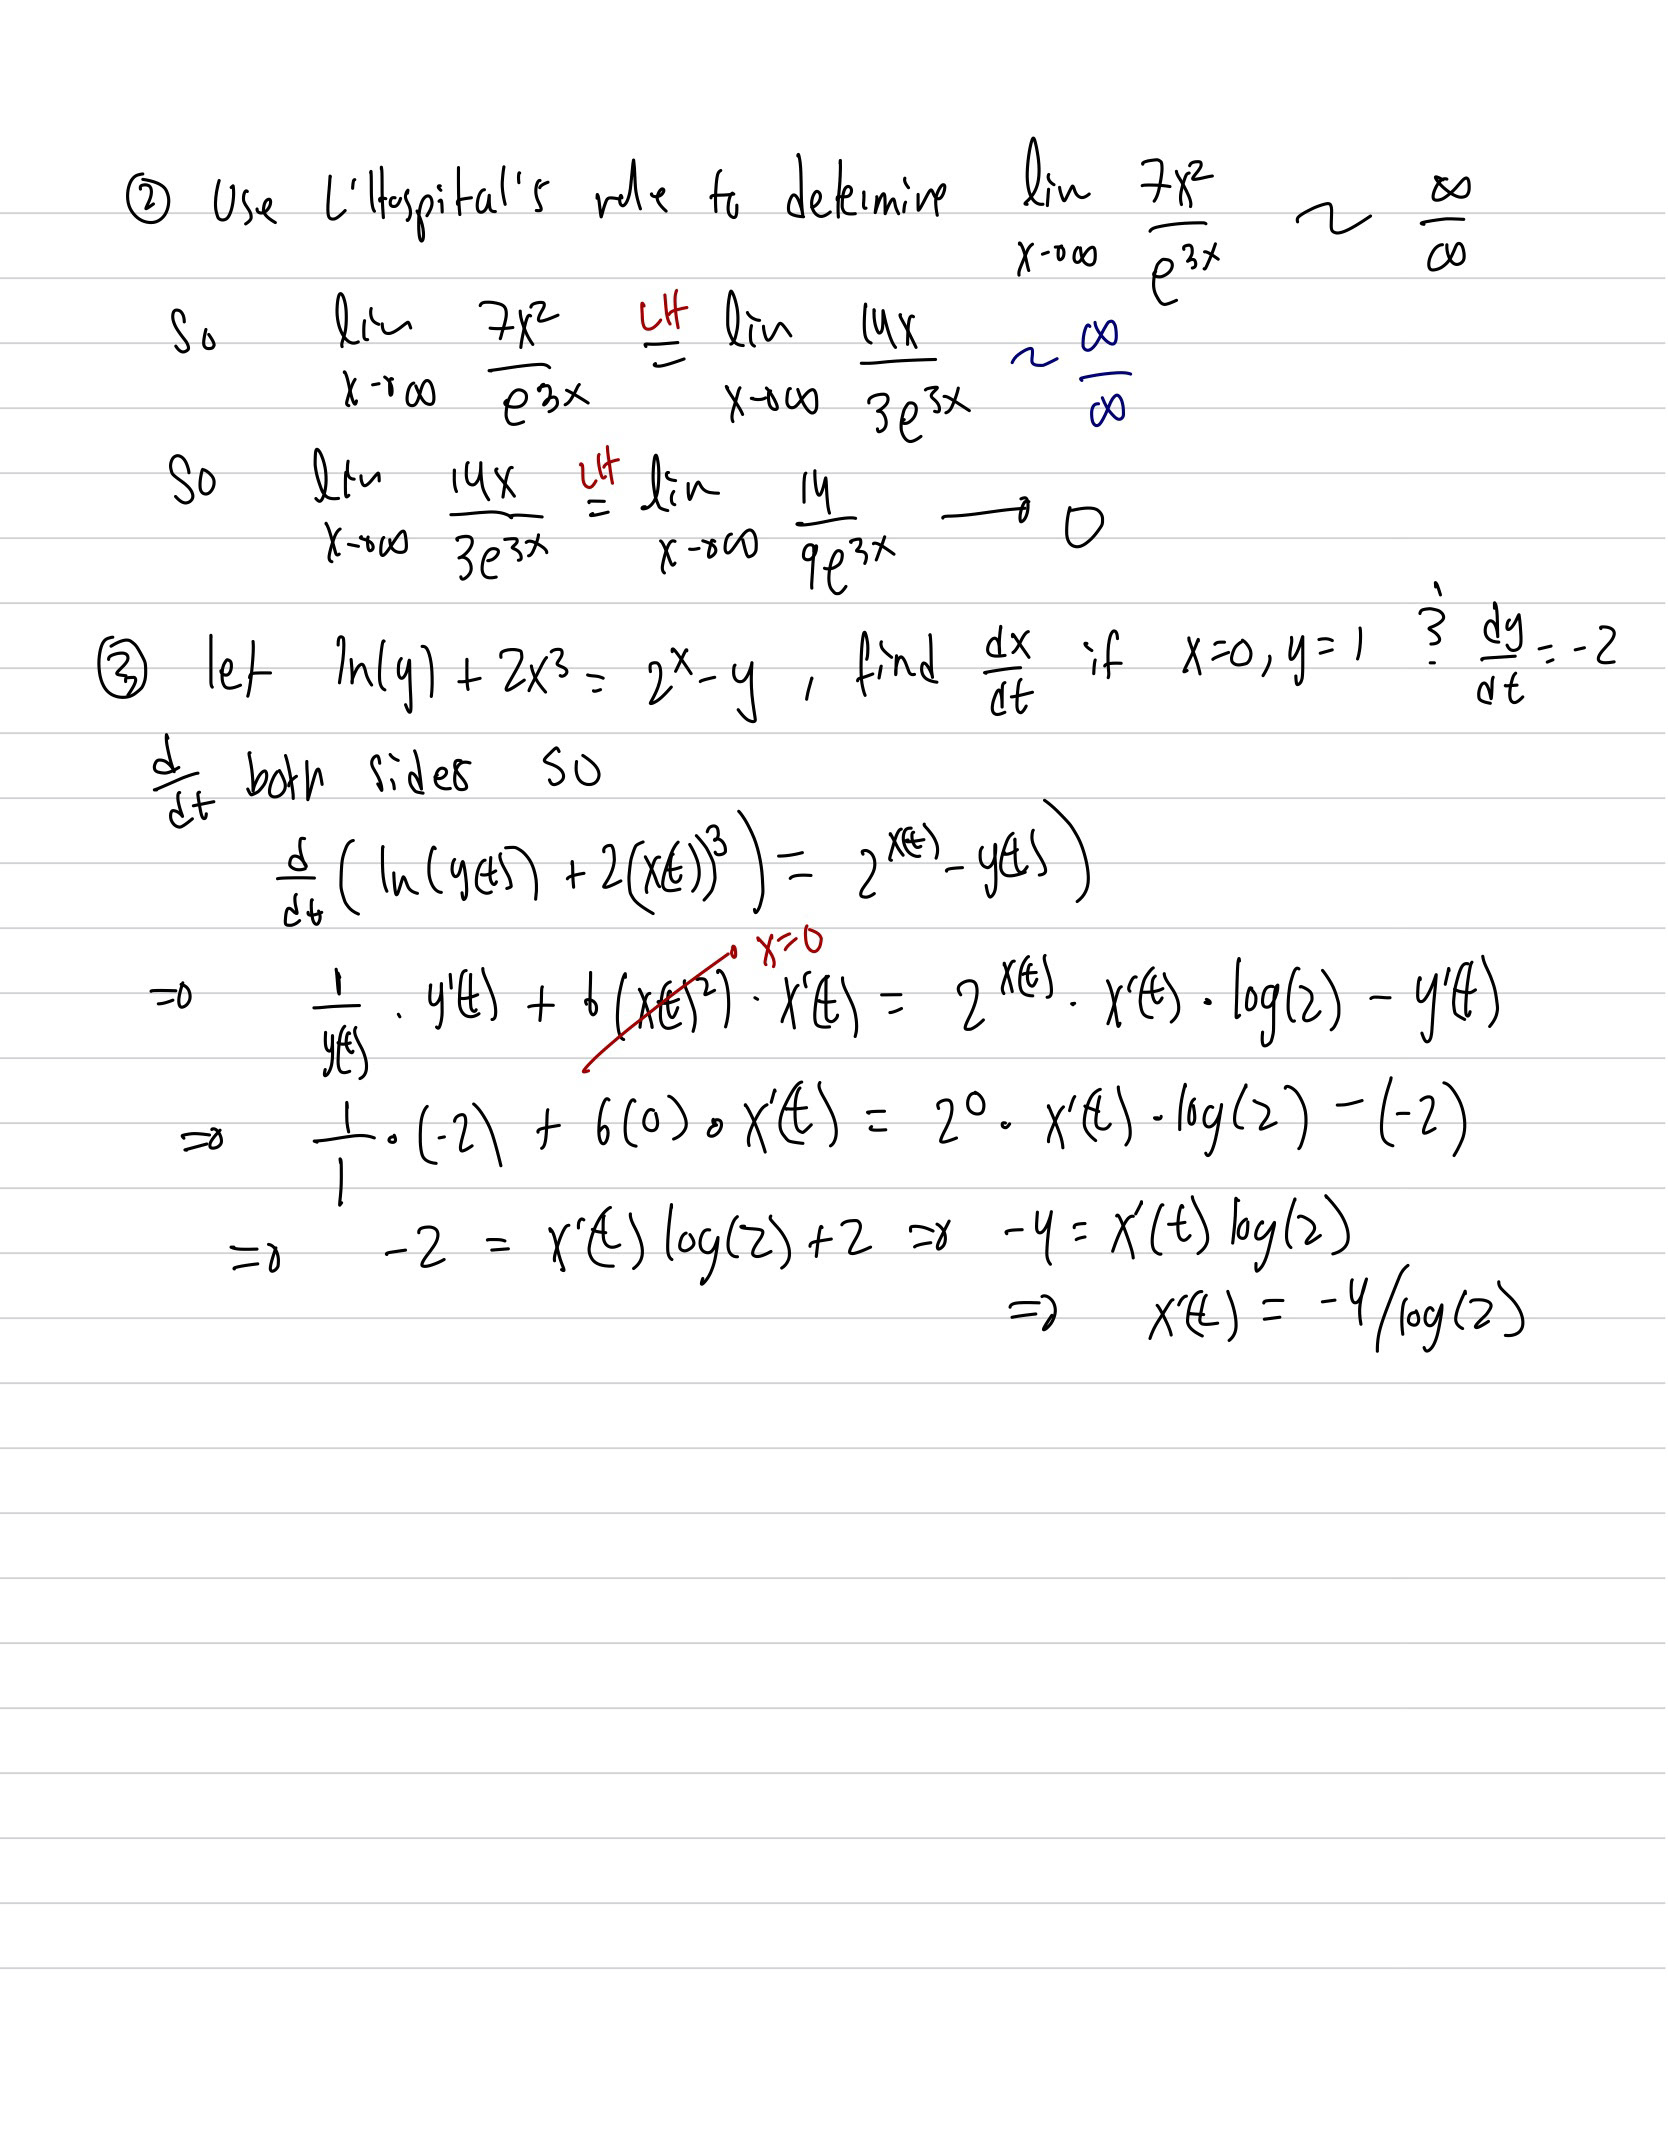 ② Use L'Hospital's rule to determine lim x→∞ 7x²/e^{3x} ~ ∞/∞
So lim x→∞ 7x²/e^{3x} =^{LH} lim x→∞ 14x/3e^{3x} ~ ∞/∞
So lim x→∞ 14x/3e^{3x} =^{LH} lim x→∞ 14/9e^{3x} → 0
③ let ln(y) + 2x³ = 2^x - y, find dx/dt if x=0, y=1 & dy/dt = -2
d/dt both sides so
d/dt (ln(y(t)) + 2(x(t))³) = 2^{x(t)} - y(t))
x=0
⇒ 1/y(t) · y'(t) + 6(x(t)²) · x'(t) = 2^{x(t)} · x'(t) · log(2) - y'(t)
⇒ 1/1 · (-2) + 6(0) · x'(t) = 2⁰ · x'(t) · log(2) - (-2)
⇒ -2 = x'(t) log(2) + 2 ⇒ -4 = x'(t) log(2)
⇒ x'(t) = -4/log(2)